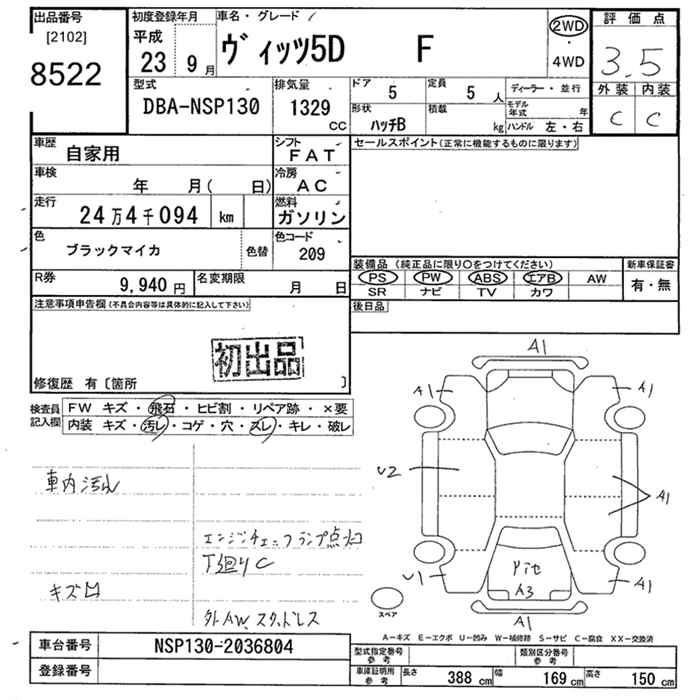 出品番号 初度登録年月 車名・グレード 評価点
[2102] 平成 ヴィッツ5D F 2WD
8522 23 9月 ・ 3.5
4WD
型式 排気量 ドア 5 定員 5人 ディーラー・並行 外装 内装
DBA-NSP130 1329 CC 形状 ハッチB 積載 kg モデル年式 年 C C
ハンドル 左・右
車歴 自家用 シフト FAT セールスポイント(正常に機能するものに限ります)
車検 年 月( 日) 冷房 AC
走行 24万4千094 km 燃料 ガソリン
色 ブラックマイカ 色替 色コード 209
装備品 (純正品に限り○をつけてください) 新車保証書
R券 9,940円 名変期限 月 日 PS PW ABS エアB AW 有・無
SR ナビ TV カワ
注意事項申告欄(不具合内容等は具体的に記入して下さい) 後日品
初出品
修復歴 有〔箇所 〕
検査員記入欄 FW キズ・飛石・ヒビ割・リペア跡・×要
内装 キズ・汚レ・コゲ・穴・スレ・キレ・破レ
A1
A1 A1
U2 A1
車内汚れ
エンジンチェックランプ点灯
下廻りC
キズ凹
外AW.スタッドレス
U1 A1
A3
A1
スペア
A-キズ E-エクボ U-凹み W-補修跡 S-サビ C-腐食 XX-交換済
車台番号 NSP130-2036804 型式指定番号 参考 類別区分番号 参考
登録番号 車庫証明用 参考 長さ 388 cm 幅 169 cm 高さ 150 cm